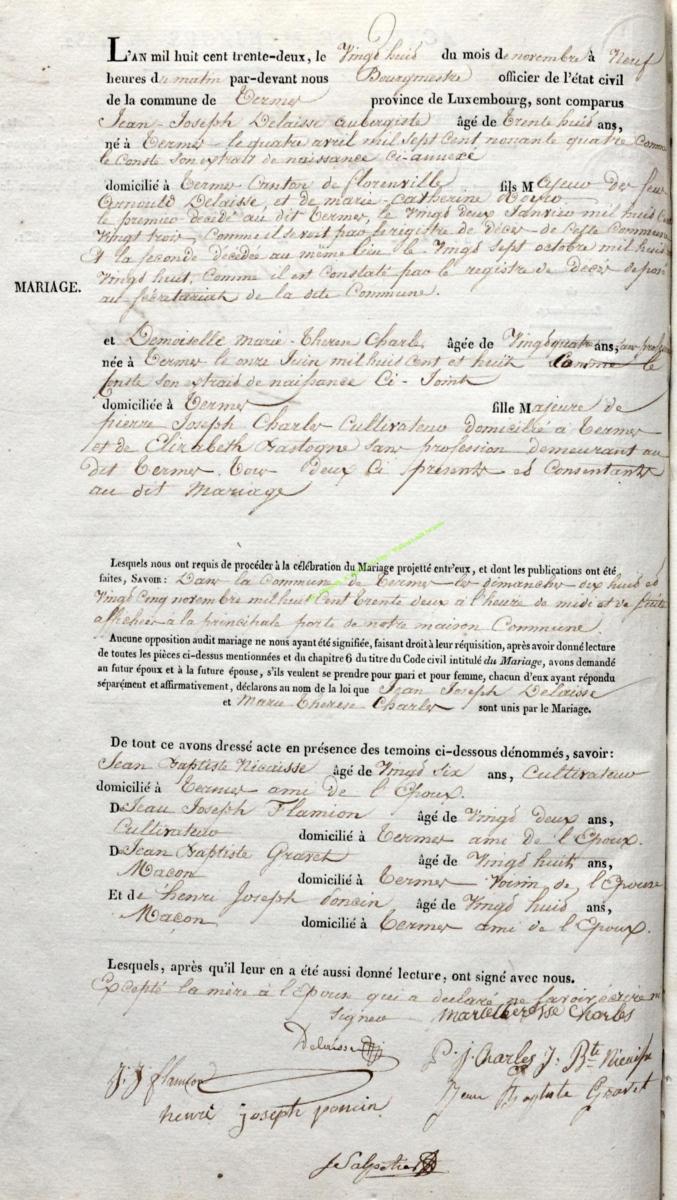 L'AN mil huit cent trente-deux, le Vingt huit du mois de novembre à Neuf
heures du matin par-devant nous Bourgmestre officier de l'état civil
de la commune de Termes province de Luxembourg, sont comparus
Jean-Joseph Delaisse aubergiste âgé de Trente huit ans,
né à Termes le quatre avril mil sept cent nonante quatre comme
le Conste son extrait de naissance ci-annexé
domicilié à Termes Canton de florenville fils Majeur de feu
Arnould Delaisse, et de marie-Catherine
le premier décédé au dit Termes, le Vingt deux Janvier mil huit Cent
Vingt trois, Comme il se voit par le régistre de décès de cette Commune
Et la seconde décédée au même lieu le Vingt Sept octobre mil huit
Vingt huit, Comme il est Constaté par le registre de Décès déposé
MARIAGE.
au secrétariat de la dite Commune.
et Demoiselle Marie-Therese Charles âgée de Vingt quatre ans, sans profession
née à Termes le onze Juin mil huit Cent et huit Comme le
Conste son extrait de naissance Ci-Joint
domiciliée à Termes fille Majeure de
pierre Joseph Charles Cultivateur domicilié à Termes
et de Elizabeth Bastogne sans profession demeurant au
dit Termes. Tous deux Ci présents et Consentants
au dit Mariage
Lesquels nous ont requis de procéder à la célébration du Mariage projetté entr'eux, et dont les publications ont été
faites, SAVOIR: Dans la Commune de Termes les dimanches dix huit et
Vingt Cinq novembre mil huit Cent Trente deux à l'heure de midi et de suite
affichées a la principale porte de notre maison Commune
Aucune opposition audit mariage ne nous ayant été signifiée, faisant droit à leur réquisition, après avoir donné lecture
de toutes les pièces ci-dessus mentionnées et du chapitre 6 du titre du Code civil intitulé du Mariage, avons demandé
au futur époux et à la future épouse, s'ils veulent se prendre pour mari et pour femme, chacun d'eux ayant répondu
séparément et affirmativement, déclarons au nom de la loi que Jean Joseph Delaisse
et Marie Therese Charles sont unis par le Mariage.
De tout ce avons dressé acte en présence des temoins ci-dessous dénommés, savoir:
Jean Baptiste Nicaisse âgé de Vingt Six ans, Cultivateur
domicilié à Termes ami de l'Epoux.
De Jean Joseph Flamion âgé de Vingt deux ans,
Cultivateur domicilié à Termes ami de l'Epoux.
De Jean Baptiste Gravet âgé de Vingt huit ans,
Maçon domicilié à Termes Voisin de l'Epouse
Et de henri Joseph poncin âgé de Vingt huit ans,
Maçon domicilié à Termes ami de l'Epoux.
Lesquels, après qu'il leur en a été aussi donné lecture, ont signé avec nous.
Excepté la mère à l'Epouse qui a déclaré ne savoir écrire ni
signer Marie theresse Charles
Delaisse
P. J. Charles J. Bte Nicaisse
J. J. flamion
Jean Baptiste Gravet
henri joseph poncin